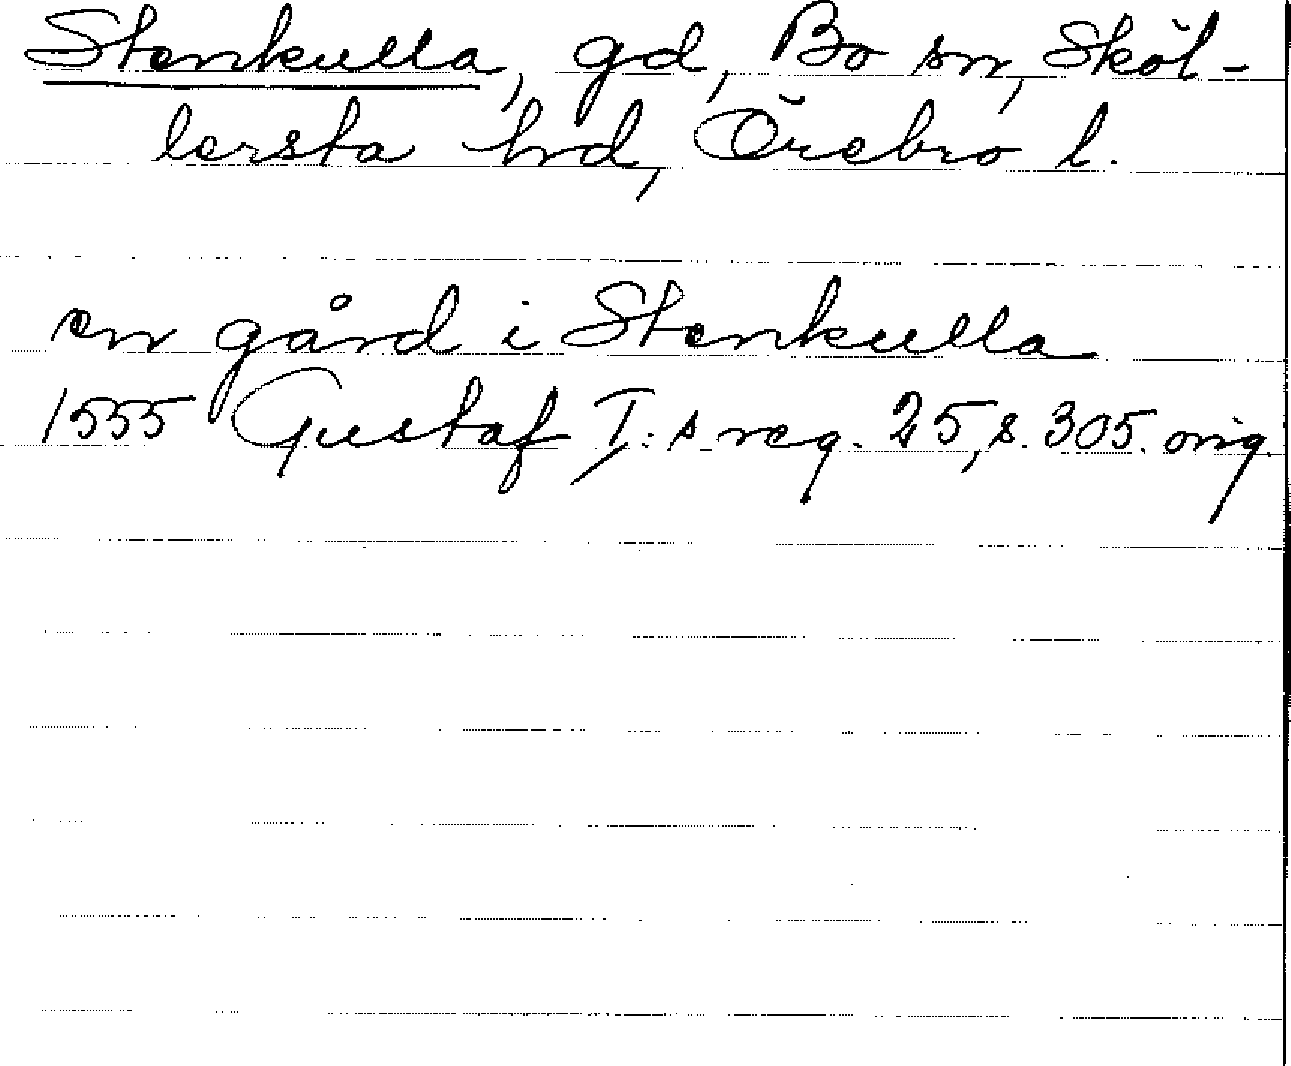 Stenkulla, gd, Bo sn, Sköl-
lersta hrd, Örebro l.
en gård i Stenkulla
1555 Gustaf I:s reg. 25, s. 305. orig.